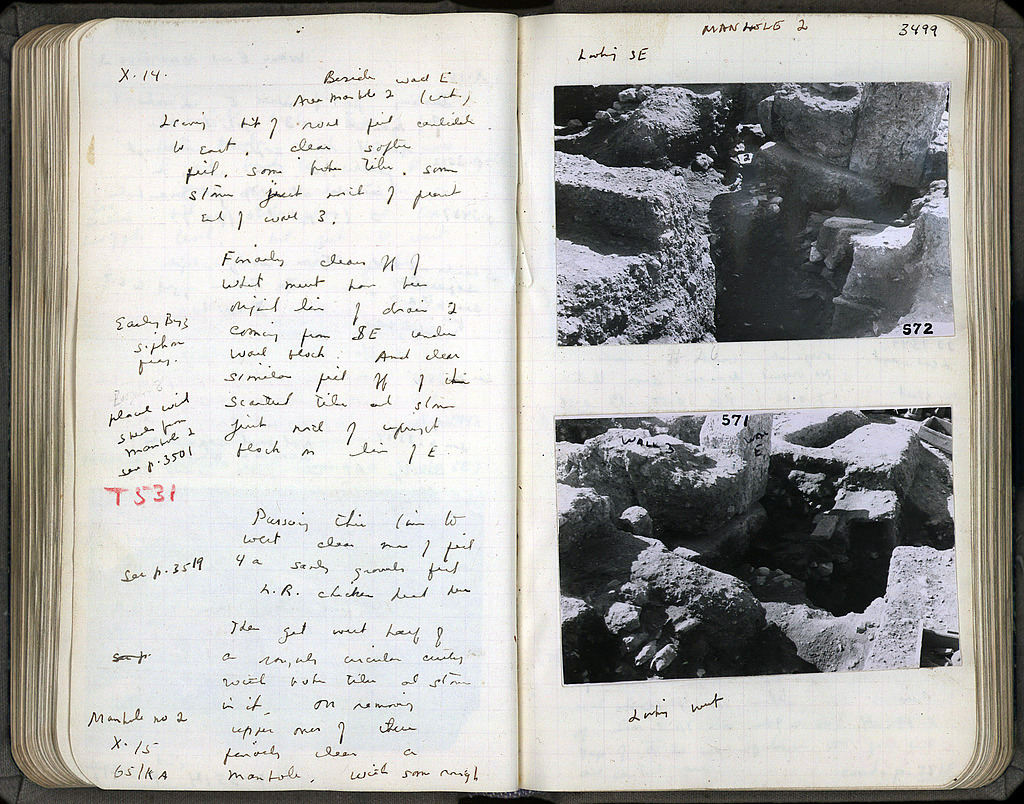 X.14.
Beside wall E
Area Manhole 2 (cont.)
Leaving bit of road fill
to East. clear softer
fill. some broken tiles. some
stone just north of
end of wall 3.
clears off of
what must have been
original line of drain 2
coming from SE under
wall block. And clear
similar fill off of this
scattered tiles and stone
just north of upright
block on line of E
Early Byz
siphon
placed with
sherds from
manhole 2
see p.3501
T 531
Pursuing this line to
west clear more of fill
of a sandy gravelly fill
L.R.
see p.3519
Then get west half of
a roughly circular cutting
with broken tiles and stone
in it. On removing
upper ones of these
clear a
manhole. With some rough
Manhole no 2
X.15
65/KA
MANHOLE 2
3499
Looking SE
2
572
571
WALL 3
WALL
E
Looking west